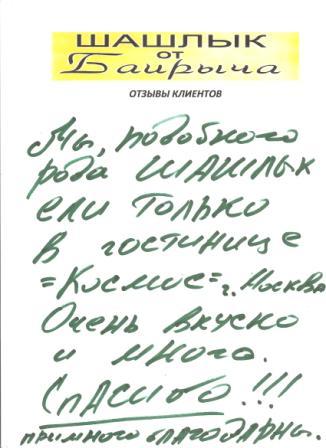 ШАШЛЫК
от
Байрыча
ОТЗЫВЫ КЛИЕНТОВ
Мы, подобного
рода ШАШЛЫК
ели только
в гостинице
=Космос= г. Москва
Очень вкусно
и много.
Спасибо!!!
примного благодарны.